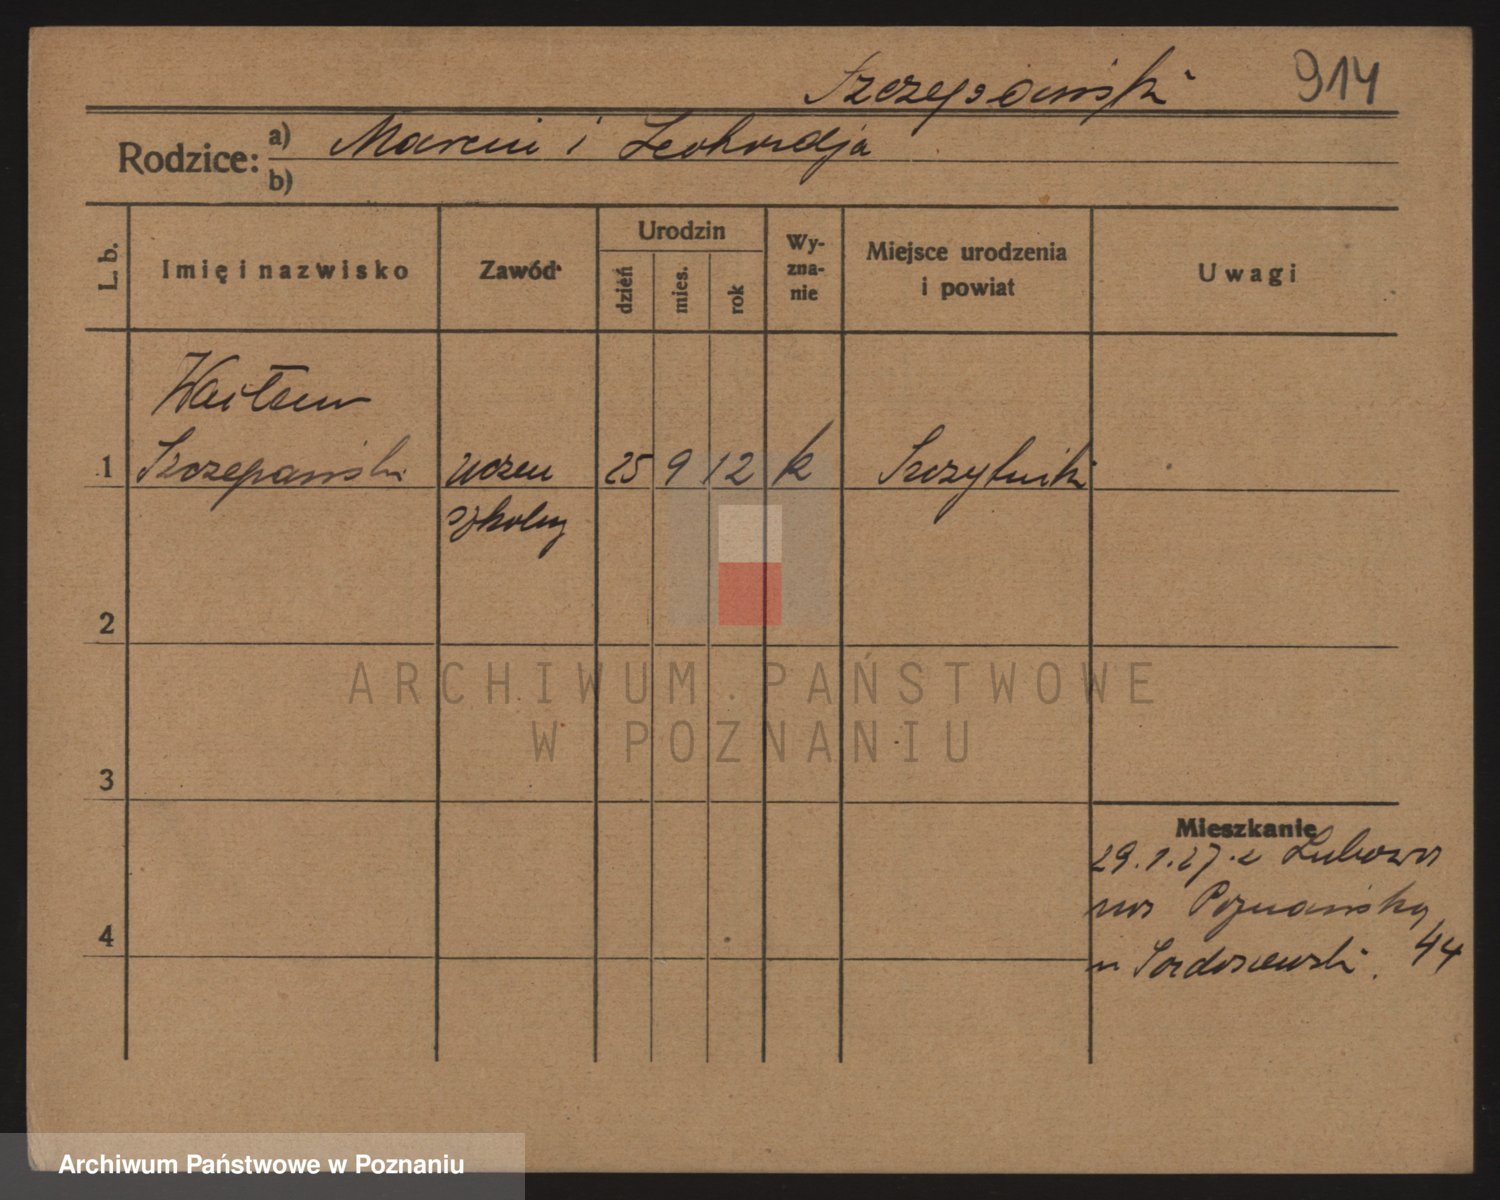 Szczepański
914
Rodzice: a) Marcin i Leokadja
b)
L. b.
Imię i nazwisko
Zawód
Urodzin
dzień
mies.
rok
Wy-
zna-
nie
Miejsce urodzenia
i powiat
Uwagi
Wacław
1 Szczepański uczeń 25 9 12 k Szczytniki
szkolny
2
3
4
Mieszkanie
29.1.27. z Lubowa
na Poznańską
u 44
ARCHIWUM PAŃSTWOWE
W POZNANIU
Archiwum Państwowe w Poznaniu